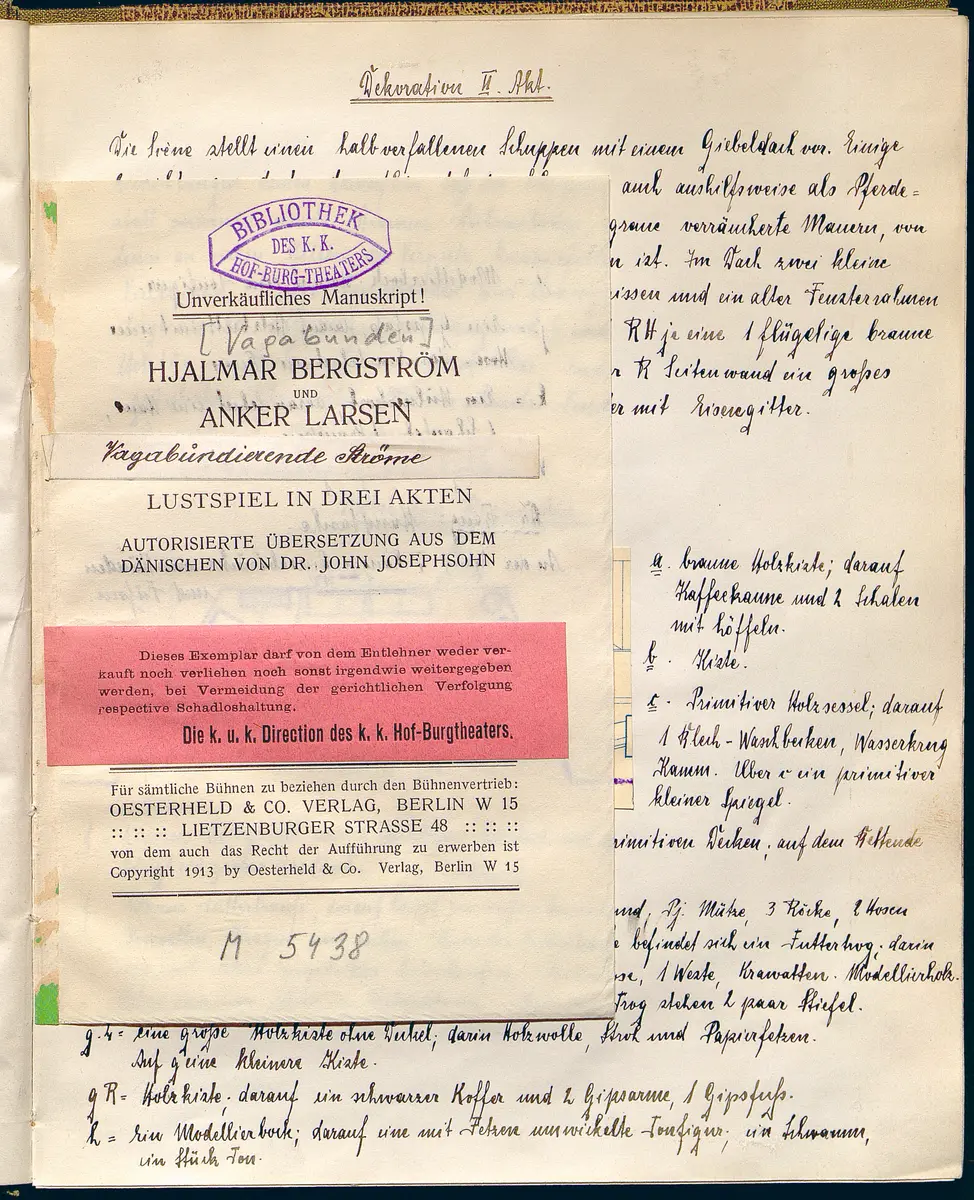 Dekoration II. Akt.
Die Scene stellt einen halbverfallenen Schuppen mit einem Giebeldach vor. Einige
auch aushilfsweise als Pferde=
graue verräucherte Mauern, von
ist. Im Dach zwei kleine
issen und ein alter Fensterrahmen
RH je eine 1 flügelige braune
R Seitenwand ein großes
er mit Eisengitter.
BIBLIOTHEK
DES K. K.
HOF-BURG-THEATERS
Unverkäufliches Manuskript!
[Vagabunden]
HJALMAR BERGSTRÖM
UND
ANKER LARSEN
Vagabundierende Ströme
LUSTSPIEL IN DREI AKTEN
AUTORISIERTE ÜBERSETZUNG AUS DEM
DÄNISCHEN VON DR. JOHN JOSEPHSOHN
Dieses Exemplar darf von dem Entlehner weder ver-
kauft noch verliehen noch sonst irgendwie weitergegeben
werden, bei Vermeidung der gerichtlichen Verfolgung
respective Schadloshaltung.
Die k. u. k. Direction des k. k. Hof-Burgtheaters.
Für sämtliche Bühnen zu beziehen durch den Bühnenvertrieb:
OESTERHELD & CO. VERLAG, BERLIN W 15
:: :: :: LIETZENBURGER STRASSE 48 :: :: ::
von dem auch das Recht der Aufführung zu erwerben ist
Copyright 1913 by Oesterheld & Co. Verlag, Berlin W 15
M 5438
a. braune Holzkiste; darauf
Kaffeekanne und 2 Schalen
mit Löffeln.
b. Kiste.
c. Primitiver Holzsessel; darauf
1 Blech-Waschbecken, Wasserkrug
Kamm. Über c ein primitiver
kleiner Spiegel.
primitiven Decken, auf dem Bettende
Mütze, 3 Röcke, 2 Hosen
befindet sich ein Futtertrog; darin
1 Weste, Krawatten. Modellierholz.
Trog stehen 2 paar Stiefel.
g. L = eine große Holzkiste ohne Deckel; darin Holzwolle, Stroh und Papierfetzen.
Auf g eine kleinere Kiste.
g R = Holzkiste, darauf ein schwarzer Koffer und 2 Gipsarme, 1 Gipsfuß.
h = ein Modellierbock; darauf eine mit Fetzen umwickelte Tonfigur, ein Schwamm,
ein Stück Ton.